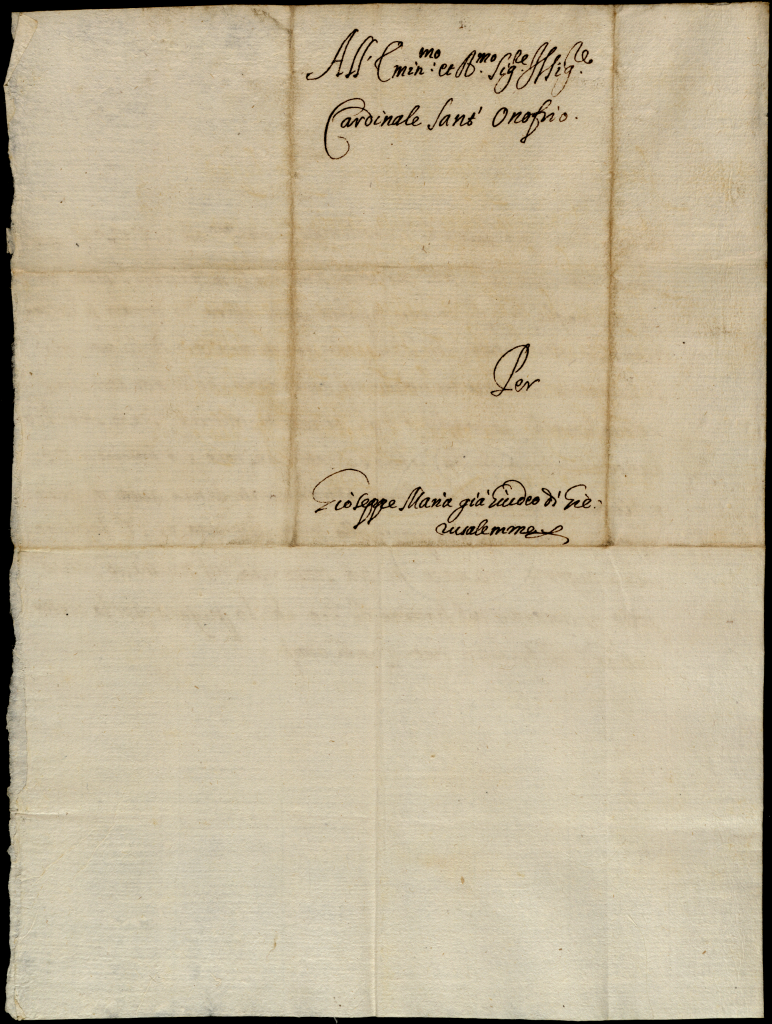 All' Emin:mo et R.mo Sig:re Il Sig:re
Cardinale Sant' Onofrio.
Per
Gioseppe Maria già Giudeo di Gie-
rusalemme